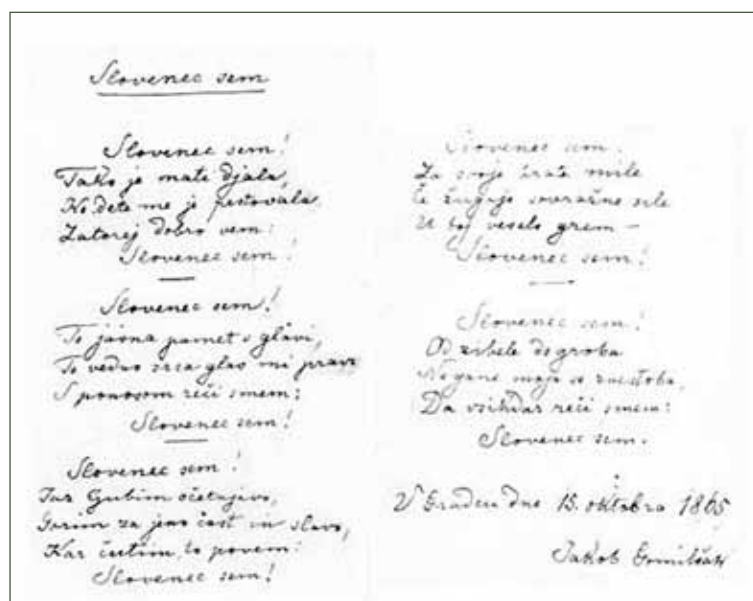 Slovenec sem
Slovenec sem!
Tako je mati djala,
Ko dete me je pestovala,
Zatorej dobro vem:
Slovenec sem!
Slovenec sem!
To jasna pamet v glavi,
To vedno srca glas mi pravi
S ponosom reči smem:
Slovenec sem!
Slovenec sem!
Jaz ljubim očetnjavo,
Gorim za jeno čast in slavo,
Kar čutim, to povem:
Slovenec sem!
Slovenec sem!
Za svoje brate mile
Če žugajo sovražne sile
V boj veselo grem –
Slovenec sem!
Slovenec sem!
Od zibele do groba
Ne gane moja se zvestoba,
Da vsikdar reči smem:
Slovenec sem.
V Gradcu dne 15. oktobra 1865
Jakob Gomilšak